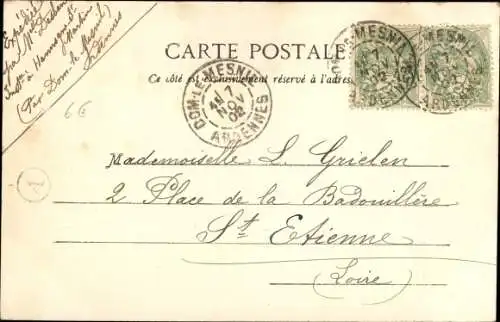 Expédié
par Mr Dechen
Instr à Hannogne St
Martin
(Par Dom-le-Mesnil)
Ardennes
CARTE POSTALE
Ce côté est exclusivement réservé à l'adres
DOM-LE-MESNIL
7
NOV
02
ARDENNES
DOM-LE-MESNIL
7
NOV
02
ARDENNES
6€
1
Mademoiselle L. Grielen
2 Place de la Badouillère
St Etienne
(Loire)